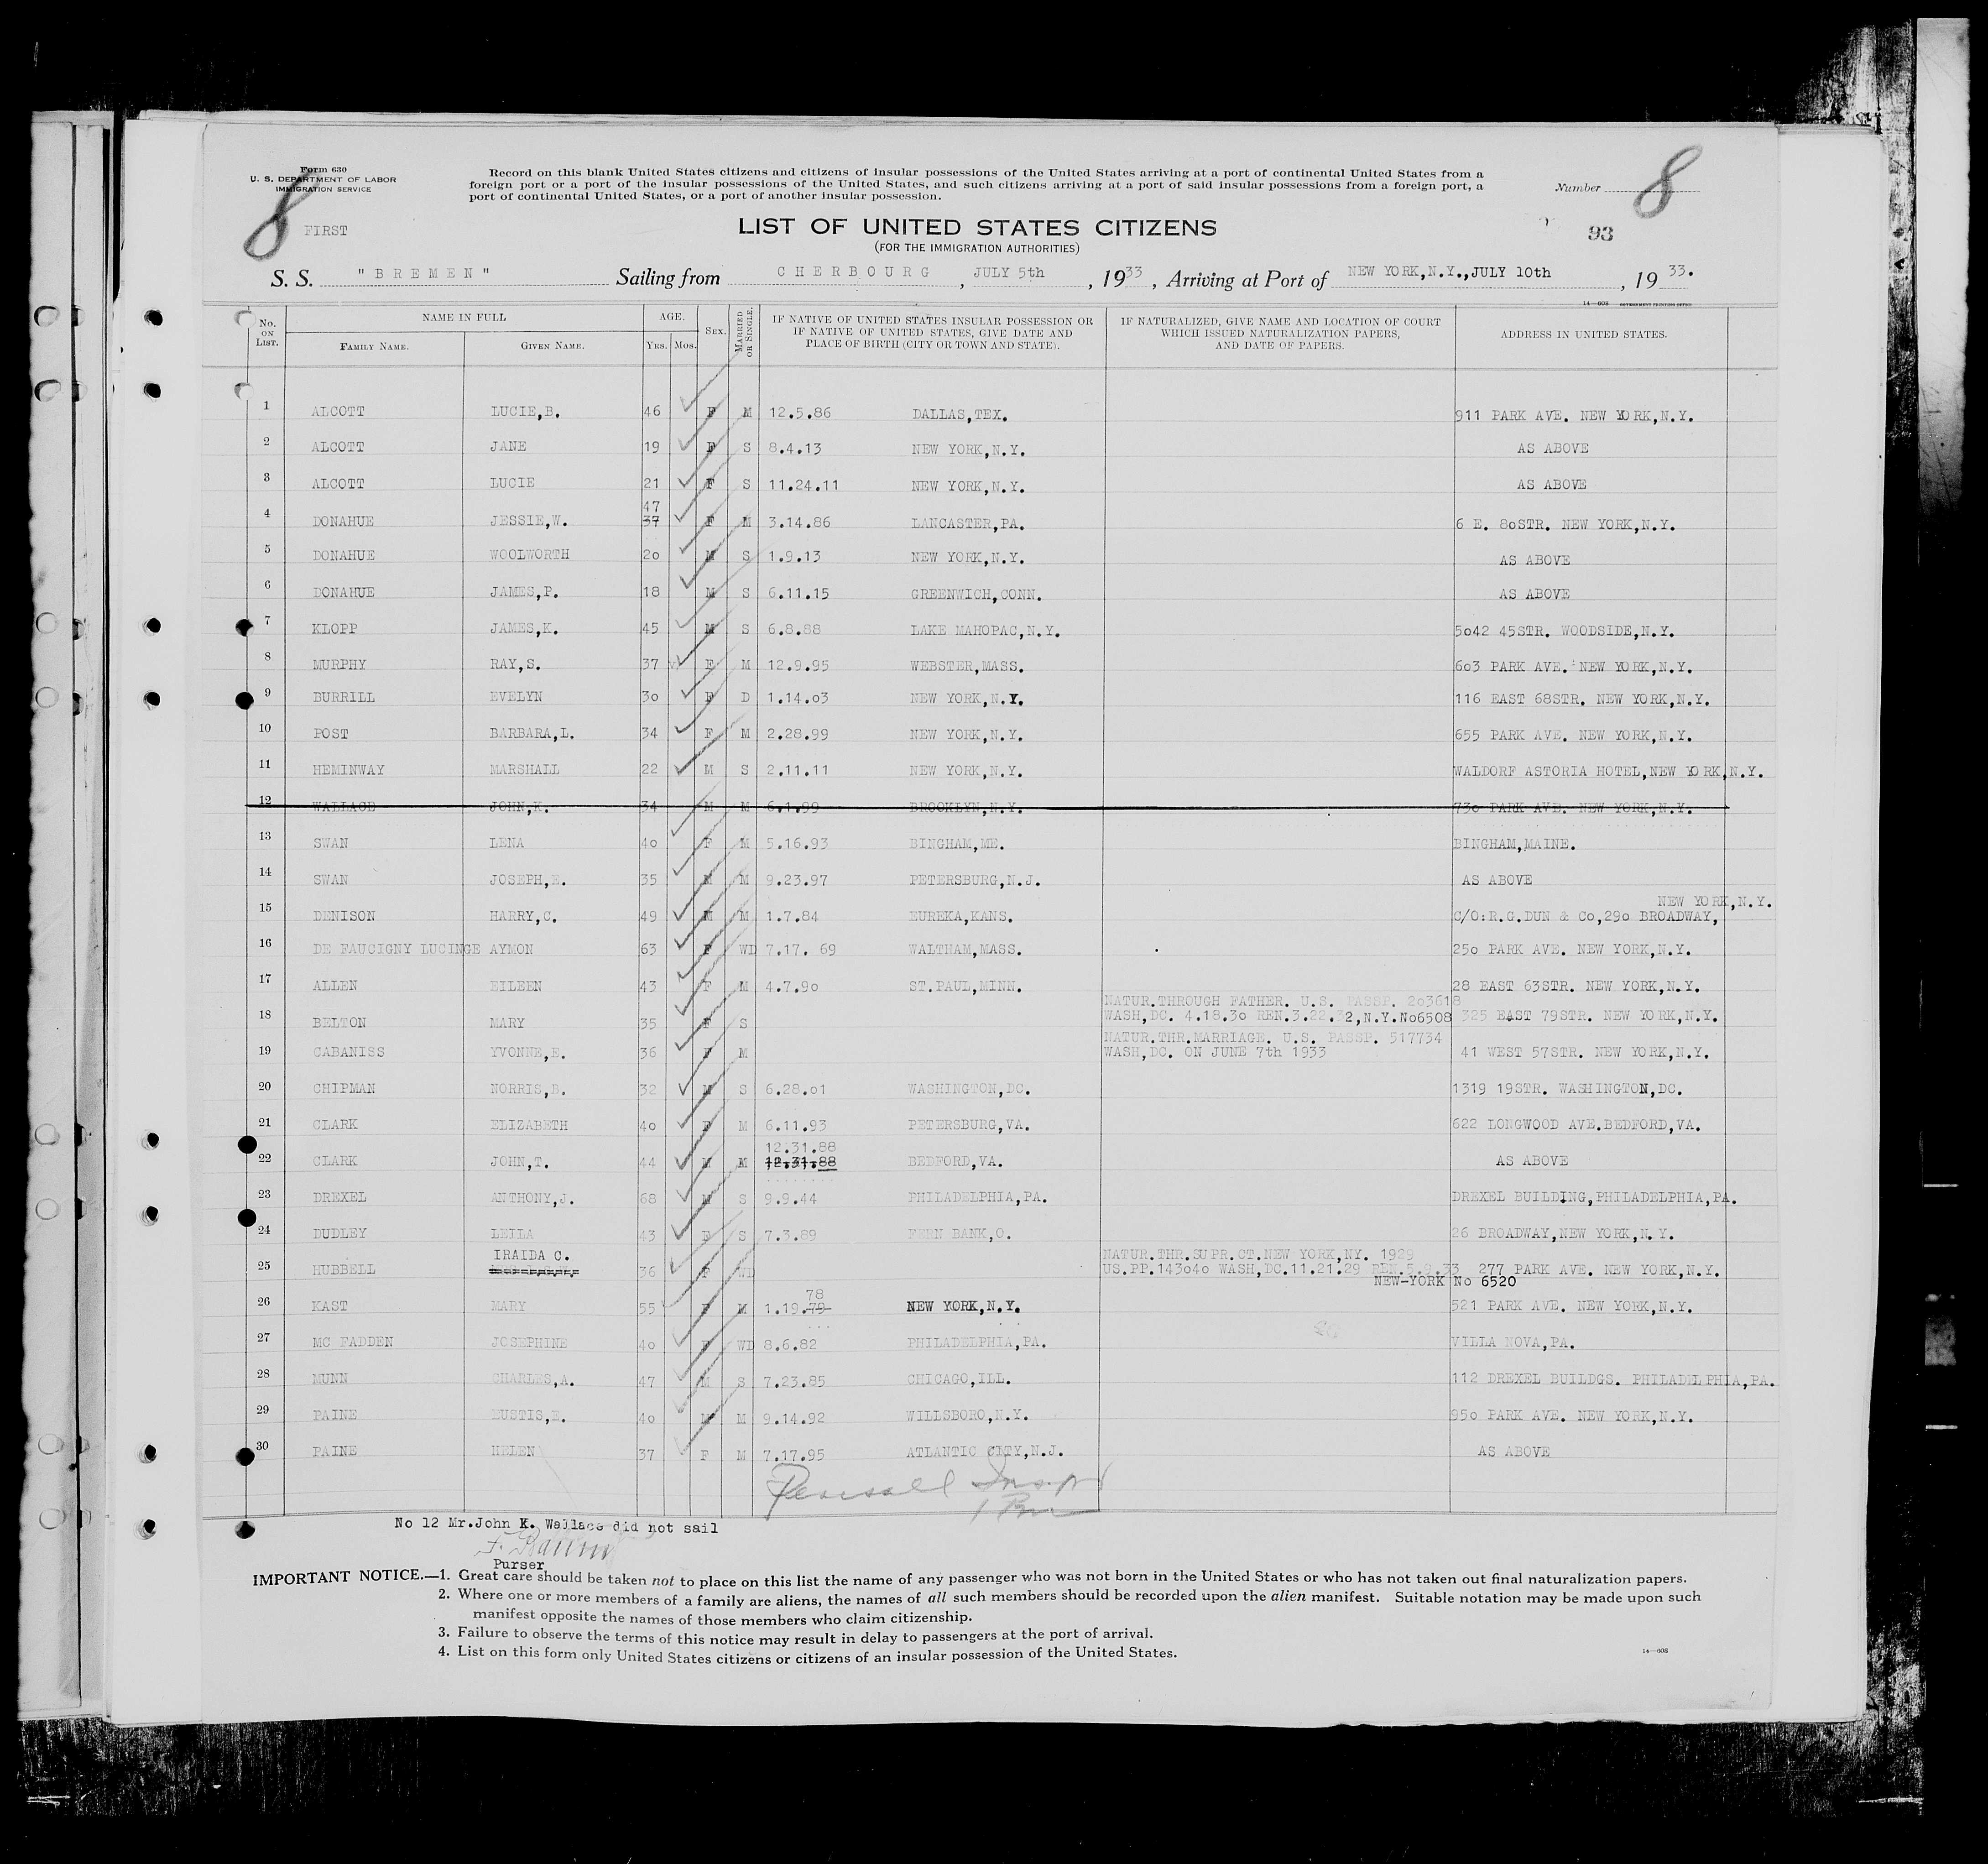 Form 630
U. S. DEPARTMENT OF LABOR
IMMIGRATION SERVICE
Record on this blank United States citizens and citizens of insular possessions of the United States arriving at a port of continental United States from a
foreign port or a port of the insular possessions of the United States, and such citizens arriving at a port of said insular possessions from a foreign port, a
port of continental United States, or a port of another insular possession.
Number 8
8
FIRST
LIST OF UNITED STATES CITIZENS
(FOR THE IMMIGRATION AUTHORITIES)
93
S. S. "BREMEN" Sailing from CHERBOURG, JULY 5th, 1933, Arriving at Port of NEW YORK,N.Y.,JULY 10th, 1933.
14—608 GOVERNMENT PRINTING OFFICE
No. ON LIST. NAME IN FULL FAMILY NAME. GIVEN NAME. AGE. YRS. MOS. SEX. MARRIED OR SINGLE. IF NATIVE OF UNITED STATES INSULAR POSSESSION OR IF NATIVE OF UNITED STATES, GIVE DATE AND PLACE OF BIRTH (CITY OR TOWN AND STATE). IF NATURALIZED, GIVE NAME AND LOCATION OF COURT WHICH ISSUED NATURALIZATION PAPERS, AND DATE OF PAPERS. ADDRESS IN UNITED STATES.
1 ALCOTT LUCIE,B. 46 F M 12.5.86 DALLAS,TEX. 911 PARK AVE. NEW YORK,N.Y.
2 ALCOTT JANE 19 F S 8.4.13 NEW YORK,N.Y. AS ABOVE
3 ALCOTT LUCIE 21 F S 11.24.11 NEW YORK,N.Y. AS ABOVE
47
4 DONAHUE JESSIE,W. 37 F M 3.14.86 LANCASTER,PA. 6 E. 8oSTR. NEW YORK,N.Y.
5 DONAHUE WOOLWORTH 2o M S 1.9.13 NEW YORK,N.Y. AS ABOVE
6 DONAHUE JAMES,P. 18 M S 6.11.15 GREENWICH,CONN. AS ABOVE
7 KLOPP JAMES,K. 45 M S 6.8.88 LAKE MAHOPAC,N.Y. 5o42 45STR. WOODSIDE,N.Y.
8 MURPHY RAY,S. 37 F M 12.9.95 WEBSTER,MASS. 6o3 PARK AVE. NEW YORK,N.Y.
9 BURRILL EVELYN 3o F D 1.14.o3 NEW YORK,N.Y. 116 EAST 68STR. NEW YORK,N.Y.
10 POST BARBARA,L. 34 F M 2.28.99 NEW YORK,N.Y. 655 PARK AVE. NEW YORK,N.Y.
11 HEMINWAY MARSHALL 22 M S 2.11.11 NEW YORK,N.Y. WALDORF ASTORIA HOTEL,NEW YORK,N.Y.
12 WALLACE JOHN,K. 34 M M 6.1.99 BROOKLYN,N.Y. 73o PARK AVE. NEW YORK,N.Y.
13 SWAN LENA 4o F M 5.16.93 BINGHAM,ME. BINGHAM,MAINE.
14 SWAN JOSEPH,E. 35 M M 9.23.97 PETERSBURG,N.J. AS ABOVE
NEW YORK,N.Y.
15 DENISON HARRY,C. 49 M M 1.7.84 EUREKA,KANS. C/O:R.G.DUN & Co,29o BROADWAY,
16 DE FAUCIGNY LUCINGE AYMON 63 F WD 7.17. 69 WALTHAM,MASS. 25o PARK AVE. NEW YORK,N.Y.
17 ALLEN EILEEN 43 F M 4.7.9o ST.PAUL,MINN. 28 EAST 63STR. NEW YORK,N.Y.
NATUR.THROUGH FATHER. U.S. PASSP. 2o3618
18 BELTON MARY 35 F S WASH,DC. 4.18.3o REN.3.22.32,N.Y.No6508 325 EAST 79STR. NEW YORK,N.Y.
NATUR.THR.MARRIAGE. U.S. PASSP. 517734
19 CABANISS YVONNE,E. 36 F M WASH,DC. ON JUNE 7th 1933 41 WEST 57STR. NEW YORK,N.Y.
20 CHIPMAN NORRIS,B. 32 M S 6.28.o1 WASHINGTON,DC. 1319 19STR. WASHINGTON,DC.
21 CLARK ELIZABETH 4o F M 6.11.93 PETERSBURG,VA. 622 LONGWOOD AVE.BEDFORD,VA.
12.31.88
22 CLARK JOHN,T. 44 M M 12.31.88 BEDFORD,VA. AS ABOVE
23 DREXEL ANTHONY,J. 68 M S 9.9.44 PHILADELPHIA,PA. DREXEL BUILDING,PHILADELPHIA,PA.
24 DUDLEY LEILA 43 F S 7.3.89 FERN BANK,O. 26 BROADWAY,NEW YORK,N.Y.
IRAIDA C. NATUR.THR.SUPR.CT.NEW YORK,NY. 1929
25 HUBBELL 36 F WD US.PP.143o4o WASH,DC.11.21.29 REN.5.9.33 277 PARK AVE. NEW YORK,N.Y.
NEW-YORK No 6520
78
26 KAST MARY 55 F M 1.19.79 NEW YORK,N.Y. 521 PARK AVE. NEW YORK,N.Y.
27 MC FADDEN JOSEPHINE 4o F WD 8.6.82 PHILADELPHIA,PA. VILLA NOVA,PA.
28 MUNN CHARLES,A. 47 M S 7.23.85 CHICAGO,ILL. 112 DREXEL BUILDGS. PHILADELPHIA,PA.
29 PAINE EUSTIS,E. 4o M M 9.14.92 WILLSBORO,N.Y. 95o PARK AVE. NEW YORK,N.Y.
30 PAINE HELEN 37 F M 7.17.95 ATLANTIC CITY,N.J. AS ABOVE
No 12 Mr.John K. Wallace did not sail
Purser
IMPORTANT NOTICE.—1. Great care should be taken not to place on this list the name of any passenger who was not born in the United States or who has not taken out final naturalization papers.
2. Where one or more members of a family are aliens, the names of all such members should be recorded upon the alien manifest. Suitable notation may be made upon such
manifest opposite the names of those members who claim citizenship.
3. Failure to observe the terms of this notice may result in delay to passengers at the port of arrival.
4. List on this form only United States citizens or citizens of an insular possession of the United States.
14—608